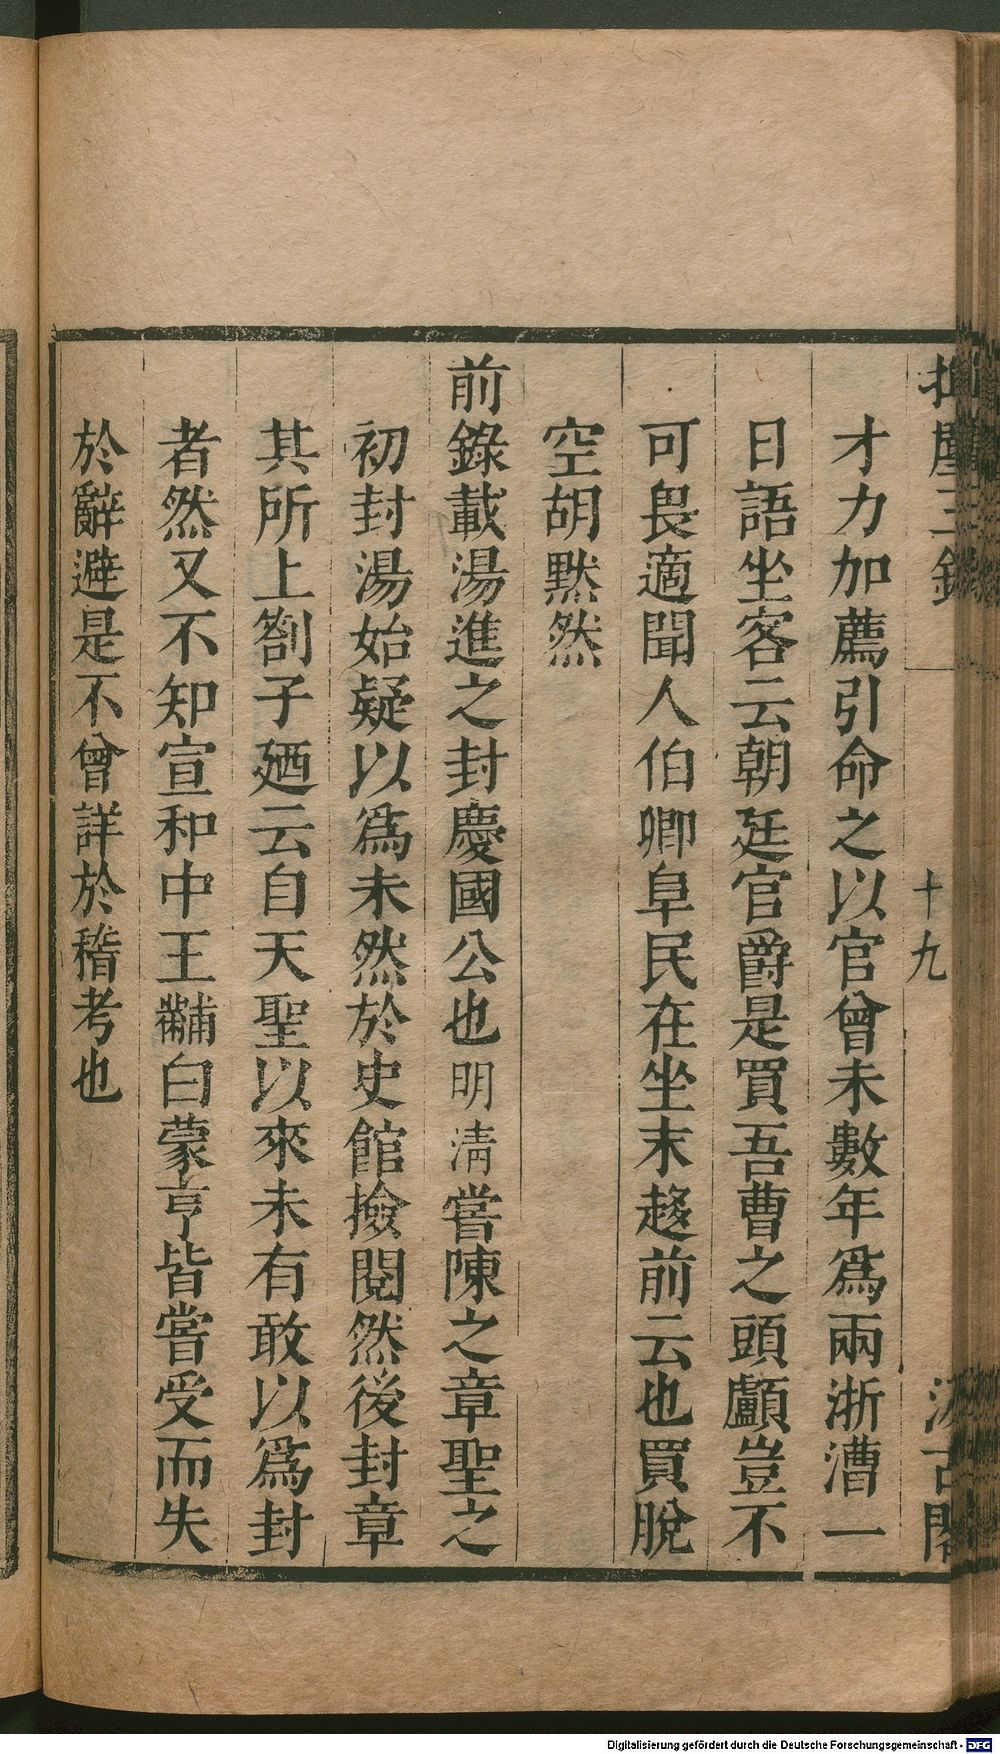 揮麈三錄
十九
汲古閣
才力加薦引命之以官曾未數年爲兩浙漕一
日語坐客云朝廷官爵是買吾曹之頭顱豈不
可畏適聞人伯卿阜民在坐末趍前云也買脫
空胡默然
前錄載湯進之封慶國公也明淸嘗陳之章聖之
初封湯始疑以爲未然於史館撿閱然後封章
其所上劄子廼云自天聖以來未有敢以爲封
者然又不知宣和中王黼白蒙亨皆嘗受而失
於辭避是不曾詳於稽考也
Digitalisierung gefördert durch die Deutsche Forschungsgemeinschaft - DFG